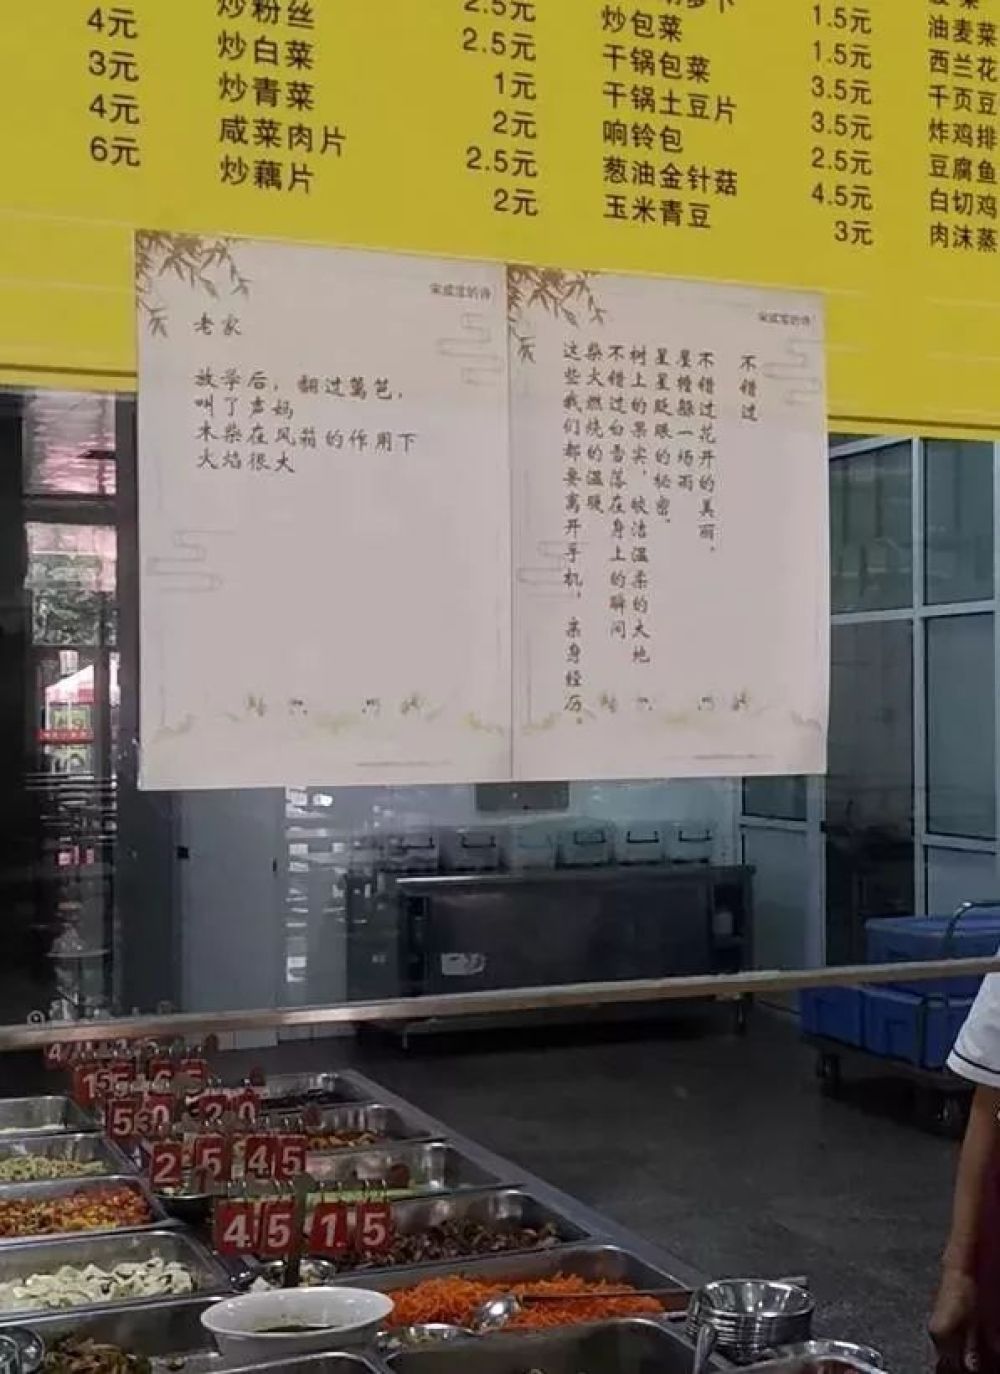 4元
3元
4元
6元
炒粉丝
炒白菜
炒青菜
咸菜肉片
炒藕片
2.5元
2.5元
1元
2元
2.5元
2元
炒包菜
干锅包菜
干锅土豆片
响铃包
葱油金针菇
玉米青豆
1.5元
1.5元
3.5元
3.5元
2.5元
4.5元
3元
油麦菜
西兰花
千页豆
炸鸡排
豆腐鱼
白切鸡
肉沫蒸
的诗
老家
放学后，翻过篱笆，
叫了声妈
木柴在风箱的作用下
火焰很大
的诗
不错过
不错过花开的美丽，
屋檐躲一场雨
星星眨眼的秘密，
树上的果实，皎洁温柔的大地
不错过白雪落在身上的瞬间
柴火燃烧的温暖
这些我们都要离开手机，亲身经历。
5 0
2 5 4 5
4 5 1 5